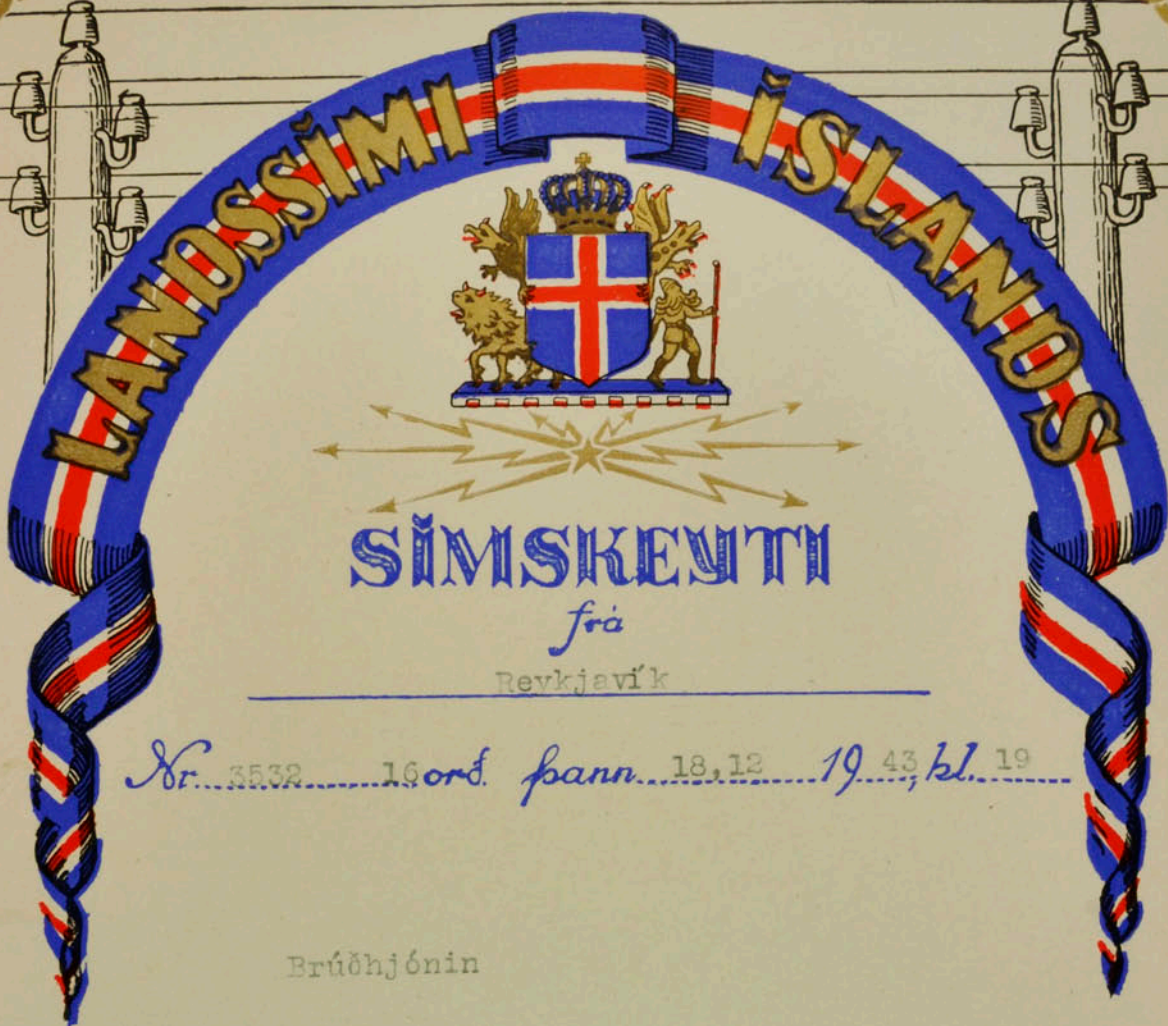 LANDSSÍMI ÍSLANDS
SÍMSKEYTI
frá
Reykjavík
Nr. 3532 16 orð. þann 18,12 19 43, kl. 19
Brúðhjónin